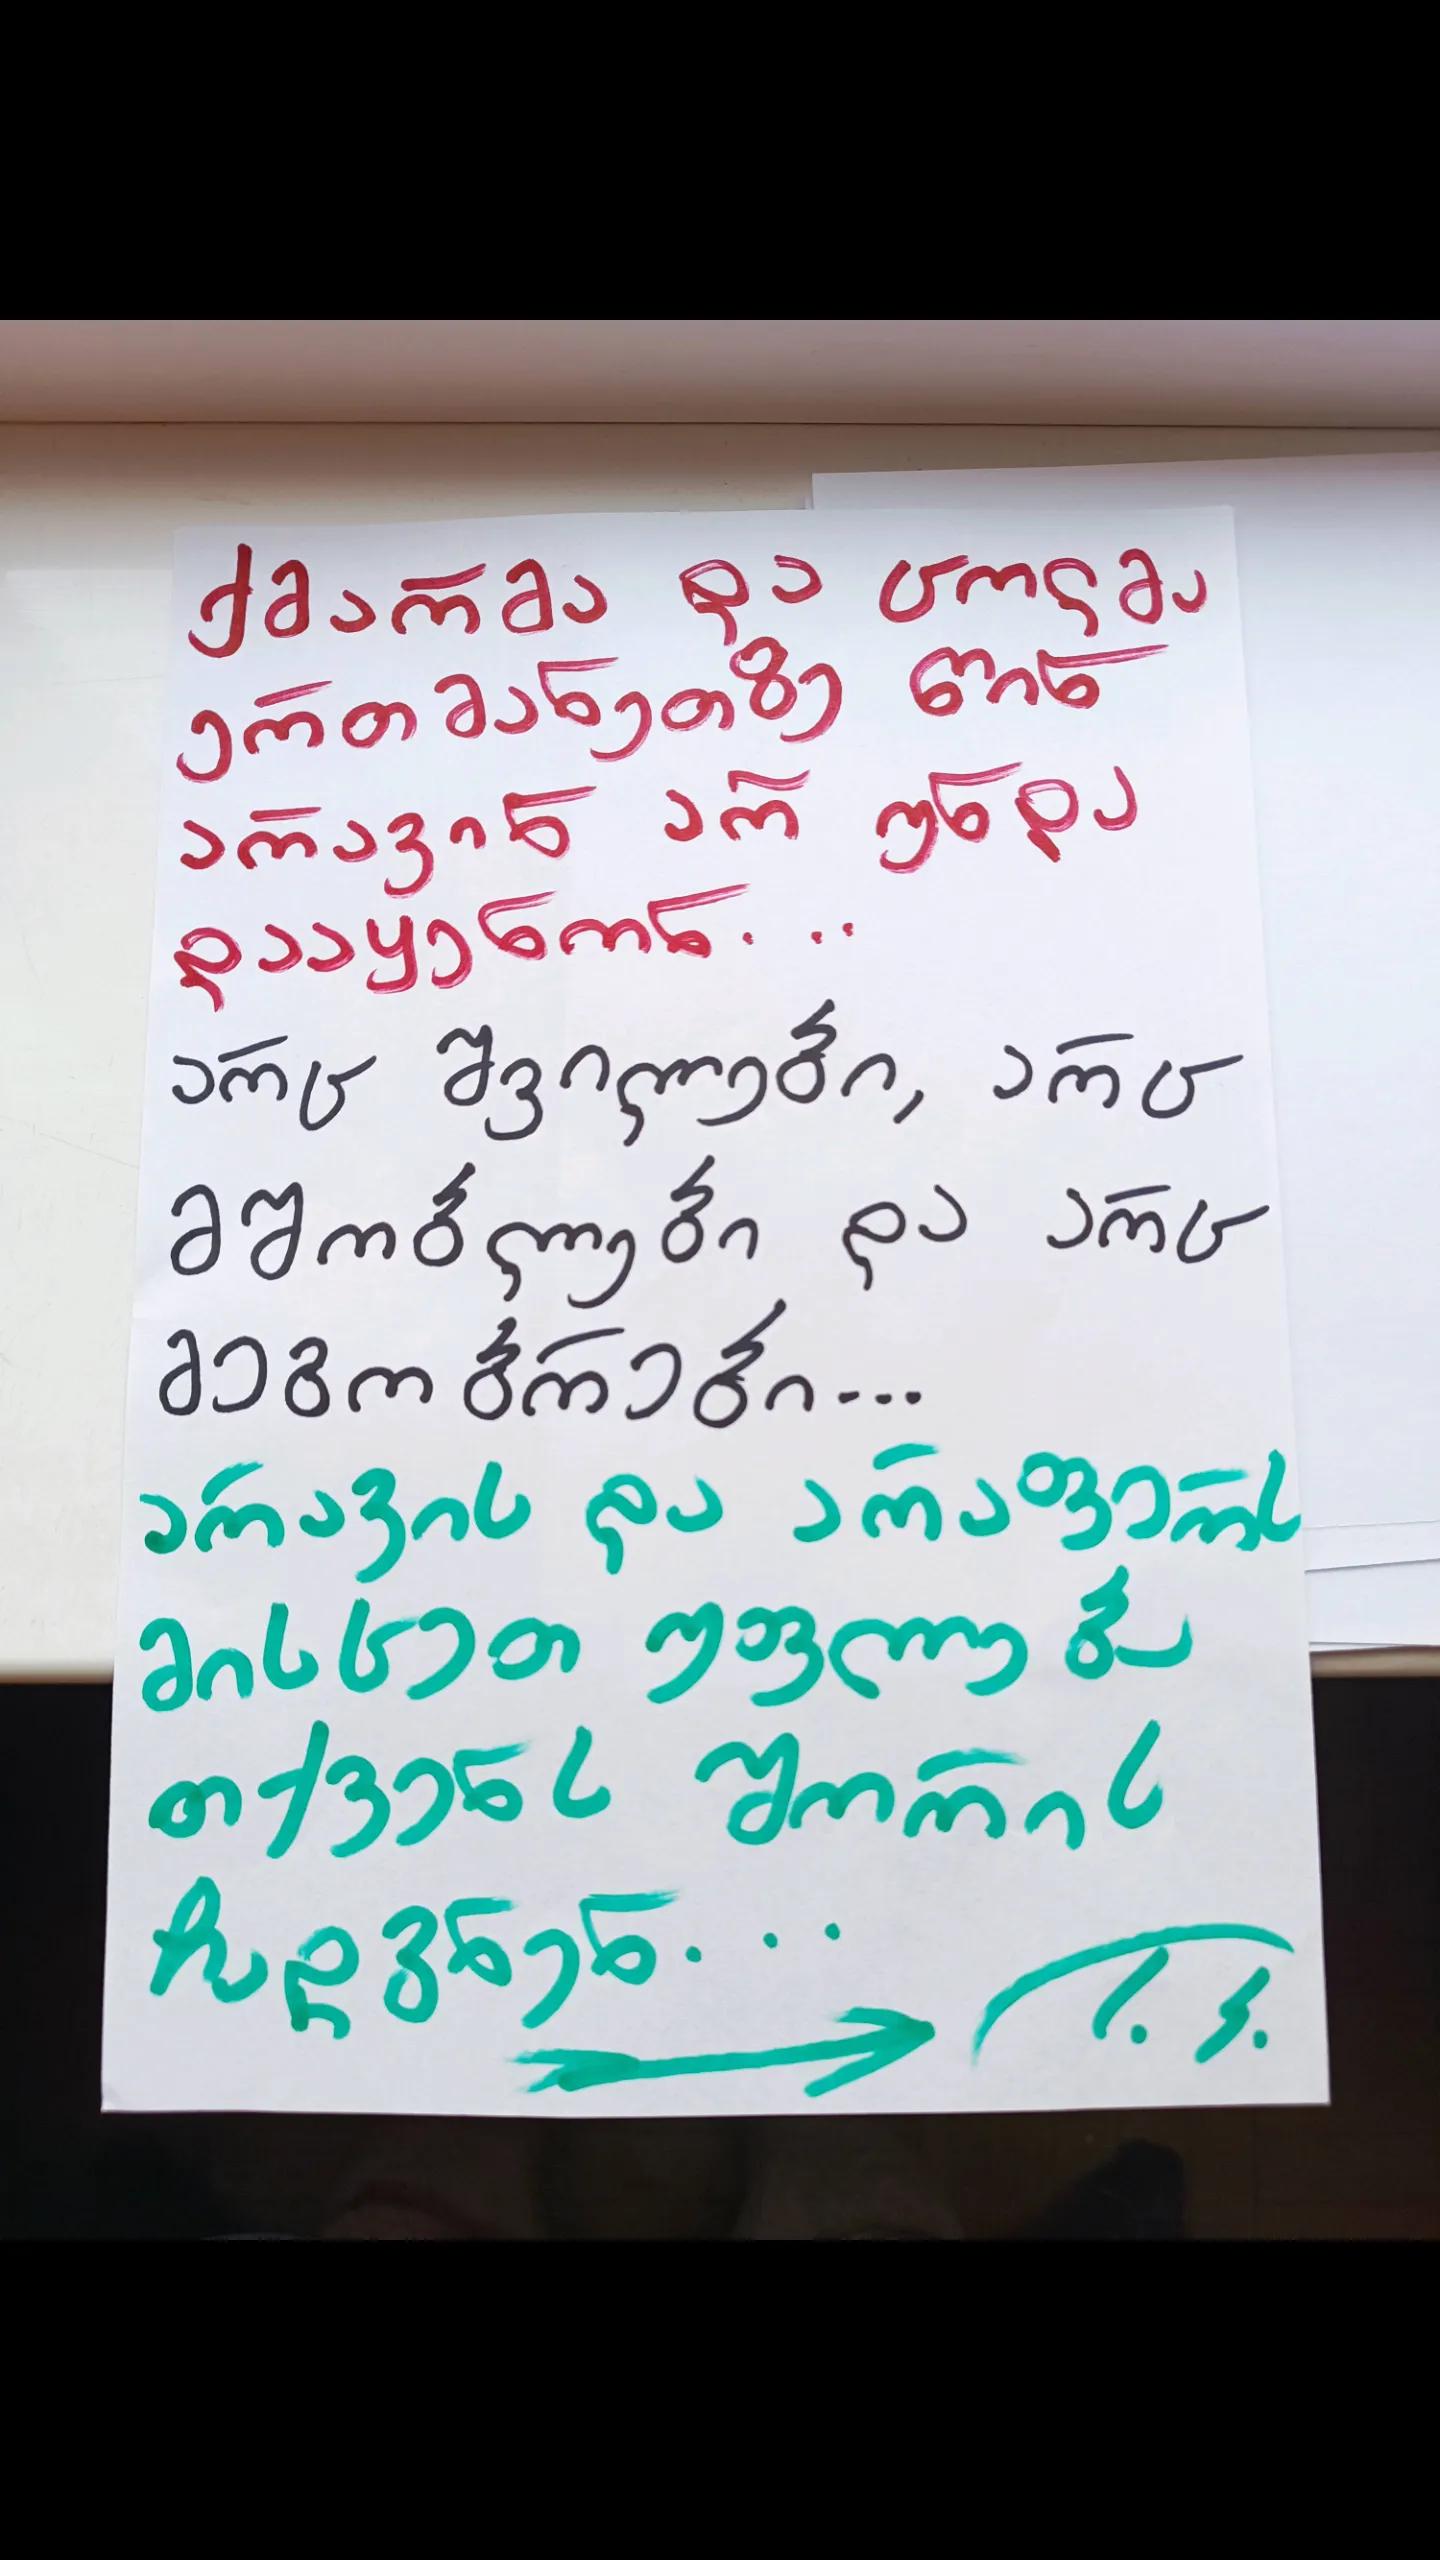 ქმარმა და ცოლმა
ერთმანეთზე წინ
არავინ არ უნდა
დააყენონ...
არც შვილები, არც
მშობლები და არც
მეგობრები...
არავის და არაფერს
მისცეთ უფლება
თქვენს შორის
ჩადგნენ...